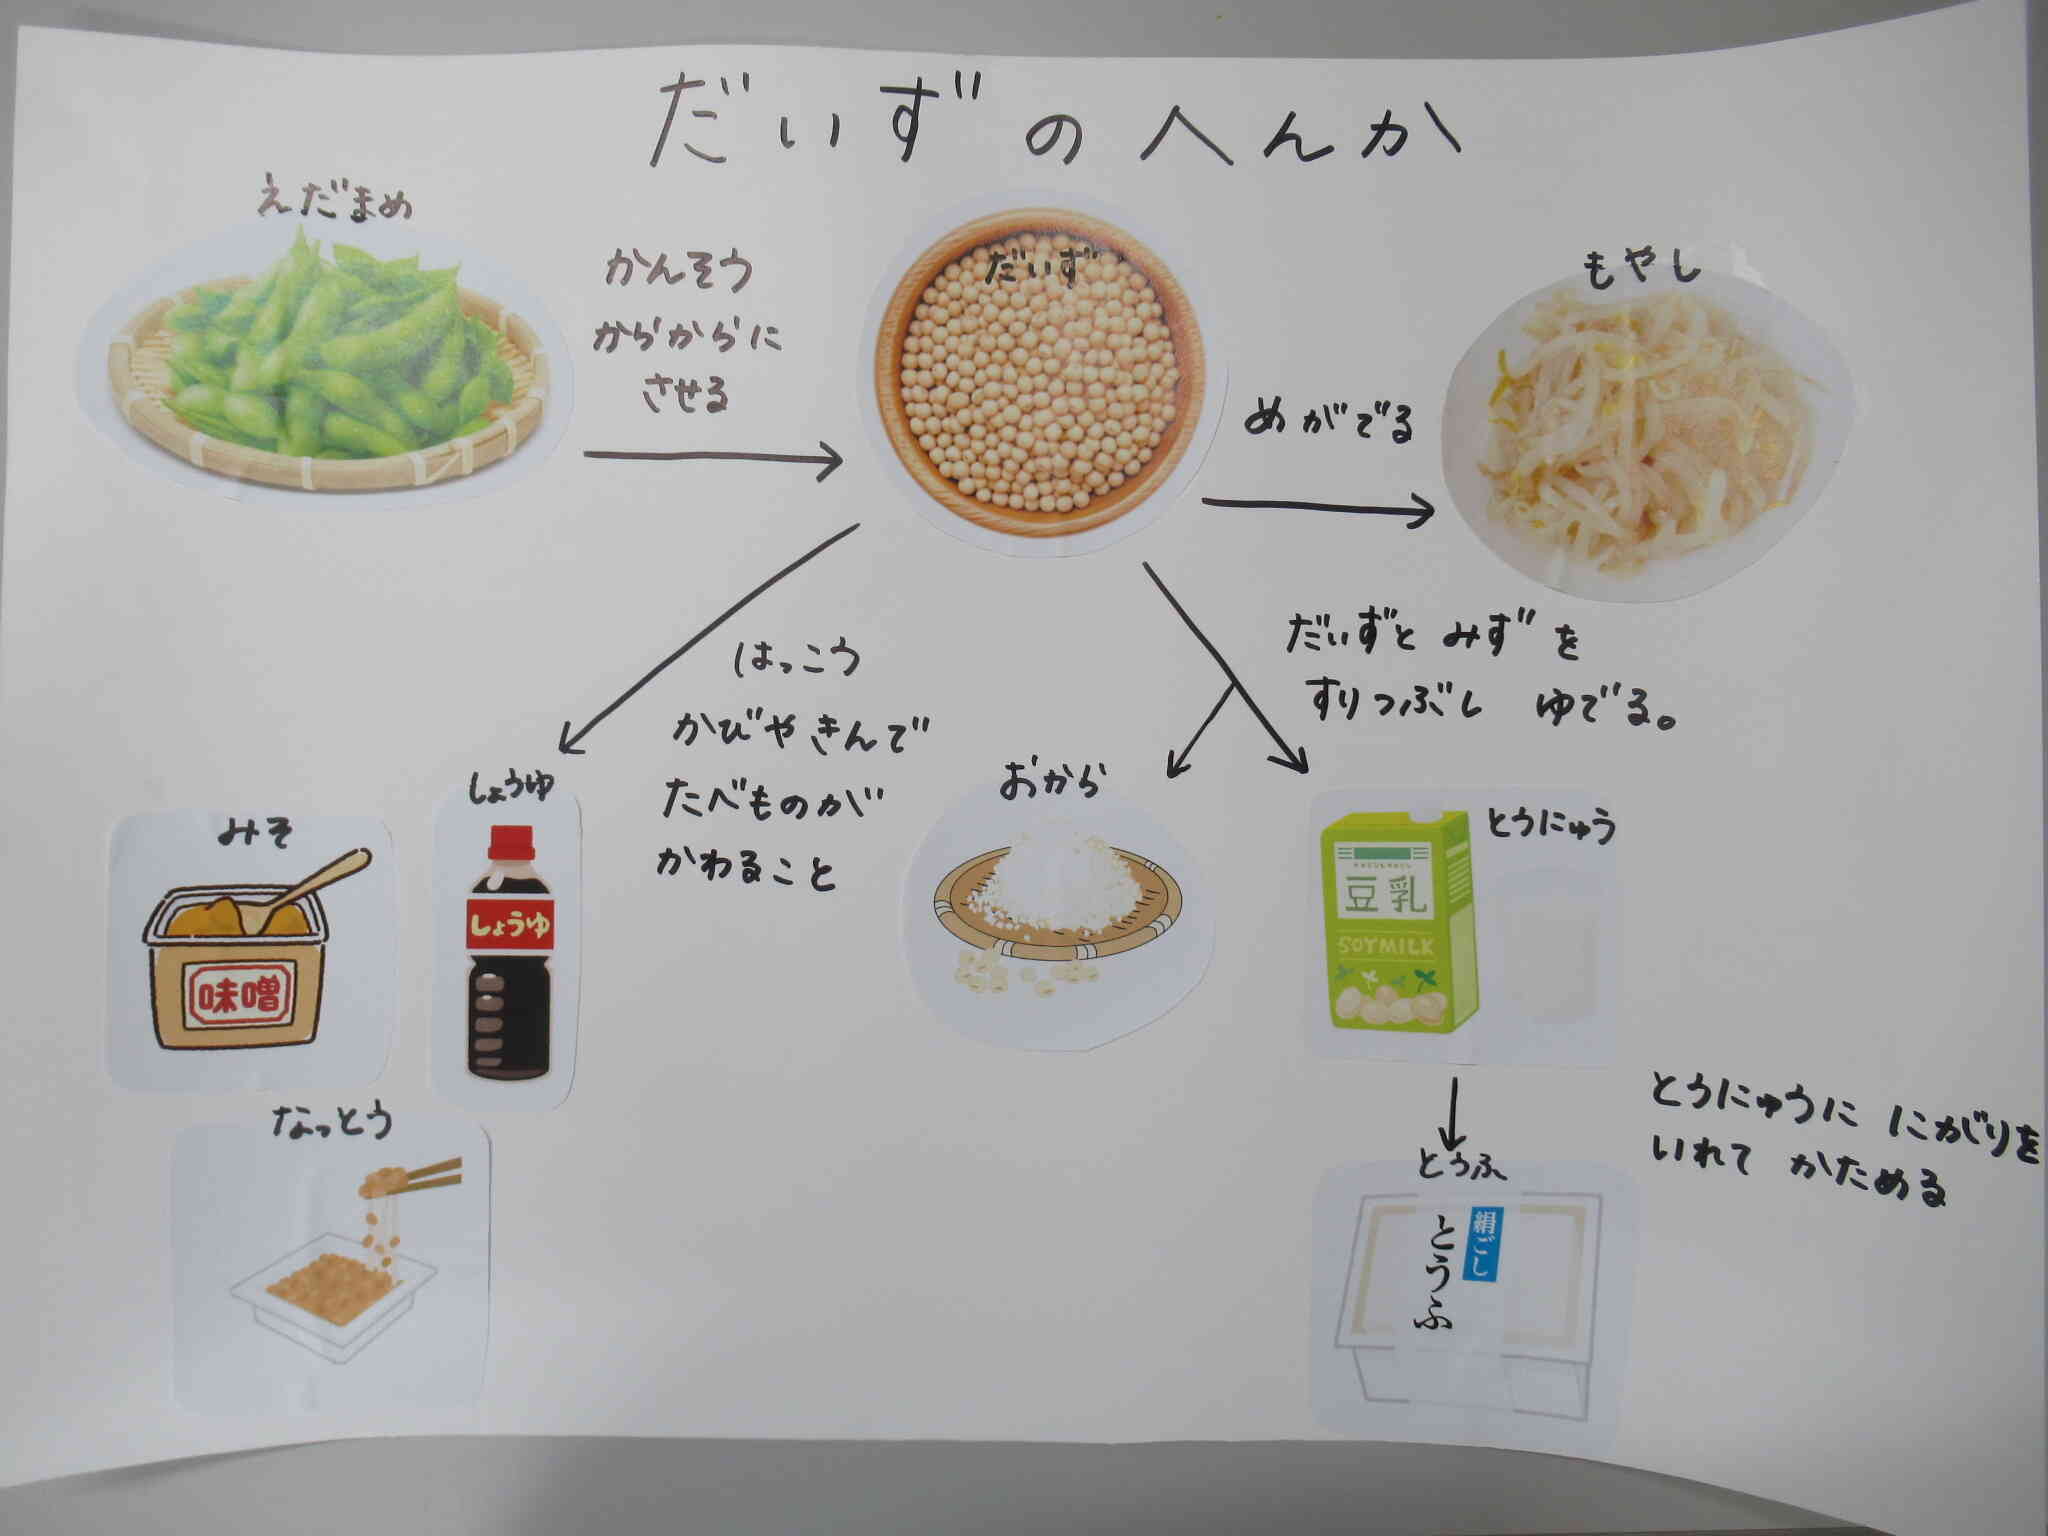 だいずのへんか
えだまめ
かんそう
からからに
させる
だいず
めがでる
もやし
はっこう
かびやきんで
たべものが
かわること
だいずと みずを
すりつぶし ゆでる。
みそ
味噌
しょうゆ
しょうゆ
なっとう
おから
とうにゅう
豆乳
SOYMILK
とうにゅうに にがりを
いれて かためる
とうふ
絹ごし
とうふ